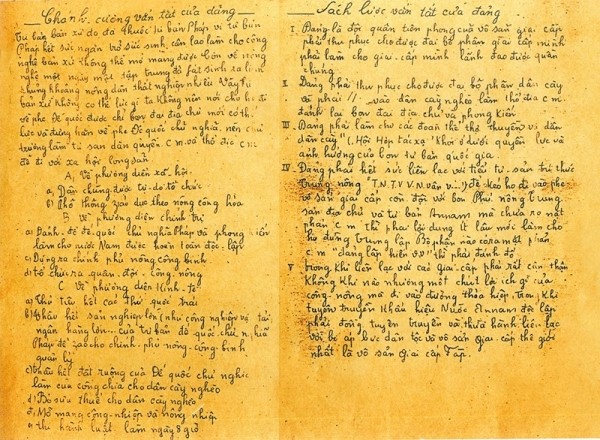 Chánh cương vắn tắt của đảng
Tư bản bản xứ đã thuộc tư bản Pháp vì tư bản
Pháp hết sức ngăn trở sức sinh sản làm cho công
nghệ bản xứ không thể mở mang được. Còn về nông
nghệ một ngày một tập trung đã phát sinh ra lắm
khủng khoảng nông dân thất nghiệp nhiều. Vậy tư
bản bản xứ không có thế lực gì ta không nên nói cho họ đi
về phe đế quốc được chỉ bọn đại địa chủ mới có thế
lực và đứng hẳn về phe đế quốc chủ nghĩa, nên chủ
trương làm tư sản dân quyền c.m và thổ địa c.m
để đi tới xã hội cộng sản.
A, Về phương diện xã hội
a, Dân chúng được tự do tổ chức
b) Phổ thông giáo dục theo nông công hóa
B Về phương diện chính trị
a) Đánh đổ đế quốc chủ nghĩa Pháp và phong kiến
làm cho nước Nam được hoàn toàn độc lập
c) Dựng ra chính phủ nông công binh
d) tổ chức ra quân đội công nông
C Về phương diện Kinh tế
a) Thủ tiêu hết các thứ quốc trái
b) thâu hết sản nghiệp lớn (như công nghiệp vận tải
ngân hàng lớn... của tư bản đế quốc chủ nghĩa
Pháp để giao cho chính phủ nông công binh
quản lý
c) thâu hết đất ruộng của Đế quốc chủ nghĩa
làm của công chia cho dân cày nghèo
d) Bỏ sưu thuế cho dân cày nghèo
đ) Mở mang công nghiệp và nông nghiệp
e) thi hành luật làm ngày 8 giờ
Sách lược vắn tắt của đảng
I. Đảng là đội quân tiên phong của vô sản giai cấp
phải thu phục cho được đại bộ phận giai cấp mình
phải làm cho giai cấp mình lãnh đạo được quần
chúng.
II Đảng phải thu phục cho được đại bộ phận dân cày
và phải // vào dân cày nghèo làm thổ địa c m.
đánh lại bọn đại địa chủ và phong kiến
III Đảng phải làm cho các đoàn thể thợ thuyền và dân
dân cày" (Hội Hợp tác xã) khỏi ở dưới quyền lực và
ảnh hưởng của bọn tư bản quốc gia.
IV Đảng phải hết sức liên lạc với tiểu tư sản trí thức
trung nông "T.N.T.V V.N vân v...) để kéo họ đi vào phe
vô sản giai cấp còn đối với bọn Phú nông trung
sản địa chủ và tư bản Annam mà chưa rõ mặt
phản c m thì phải lợi dụng ít lâu mới làm cho
họ đứng trung lập. Bộ phận nào đã ra mặt phản
c.m đảng lập hiến v.v" thì phải đánh đổ
V Trong khi liên lạc với các giai cấp phải rất cẩn thận
không khi nào nhượng một chút lợi ích gì của
công nông mà đi vào đường thỏa hiệp, trong khi
tuyên truyền khẩu hiệu Nước Annam độc lập
phải đồng tuyên truyền và thực hành liên lạc
với bị áp bức dân tộc và vô sản giai cấp thế giới
nhất là vô sản giai cấp Pháp.